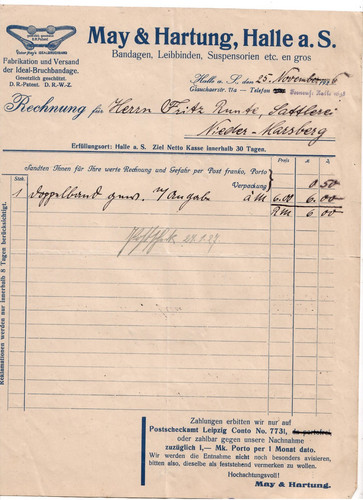 May & Hartung, Halle a. S.
Bandagen, Leibbinden, Suspensorien etc. en gros
Fabrikation und Versand
der Ideal-Bruchbandage.
Gesetzlich geschützt.
D. R.-Patent. D. R.-W.-Z.
Halle a. S., den 25. November
Glauchaerstr. 11a — Telefon
Rechnung für Herrn Fritz Runte, Sattlerei
Nieder-Marsberg
Erfüllungsort: Halle a. S. Ziel Netto Kasse innerhalb 30 Tagen.
Stck. Sandten Ihnen für Ihre werte Rechnung und Gefahr per Post franko, Porto Preis
Verpackung 0.50
1 Doppelband gew. n/Angabe à M 6.00 6.00
RM 6.00
Reklamationen werden nur innerhalb 8 Tagen berücksichtigt.
Zahlungen erbitten wir nur auf
Postscheckamt Leipzig Conto No. 7731,
oder zahlbar gegen unsere Nachnahme
zuzüglich 1,— Mk. Porto per 1 Monat dato.
Wir werden die Entnahme nicht noch besonders avisieren,
bitten also, dieselbe als feststehend vermerken zu wollen.
Hochachtungsvoll!
May & Hartung.